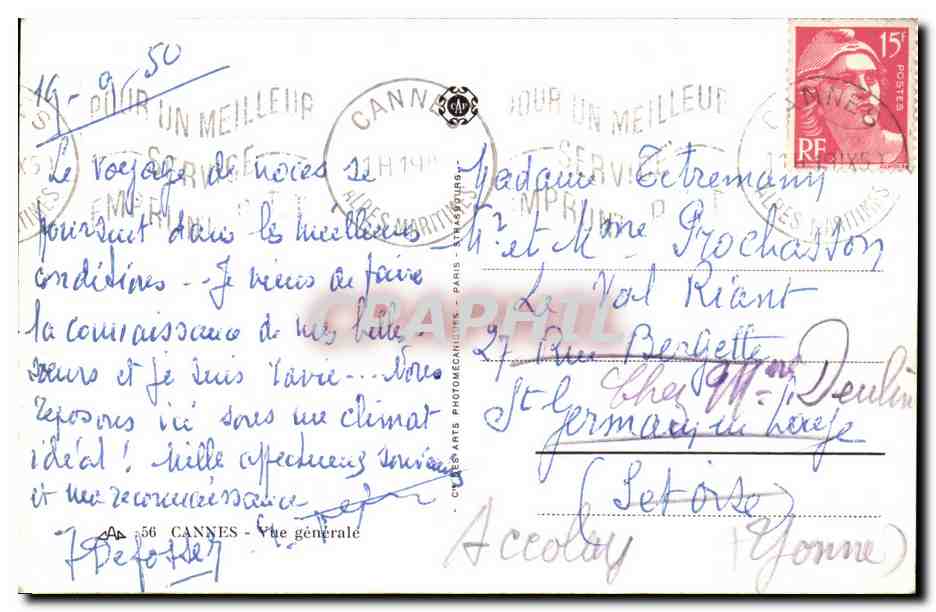 19-9-50
Le voyage de noces se
poursuit dans les meilleures
conditions.. Je viens de faire
la connaissance de mes belles-
soeurs et je suis ravie... Nous
reposons ici sous un climat
idéal! Mille affectueux souvenirs
et ma reconnaissance
56 CANNES - Vue générale
Cie DES ARTS PHOTOMÉCANIQUES - PARIS - STRASBOURG
CAP
POUR UN MEILLEUR
SERVICE
CANNES
ALPES MARITIMES
POUR UN MEILLEUR
SERVICE
CANNES
ALPES MARITIMES
15F
POSTES
RF
Madame Tetremany
Mr et Mme Prochasson
Le Val Riant
27 Rue Bergette
Chez Mme Deulin
St Germain en Laye
(Set Oise)
Accolay (Yonne)
CPAPHIL